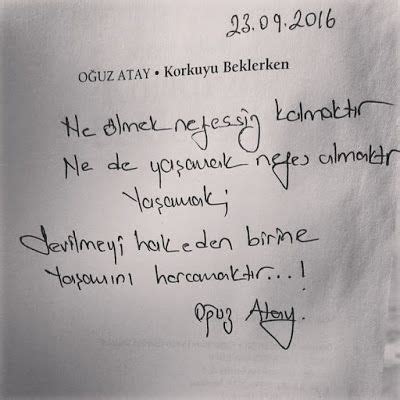 23.09.2016
OĞUZ ATAY • Korkuyu Beklerken
Ne ölmek nefessiz kalmaktır
Ne de yaşamak nefes almaktır
Yaşamak;
Sevilmeyi hakeden birine
Yaşamını harcamaktır...!
Oğuz Atay.